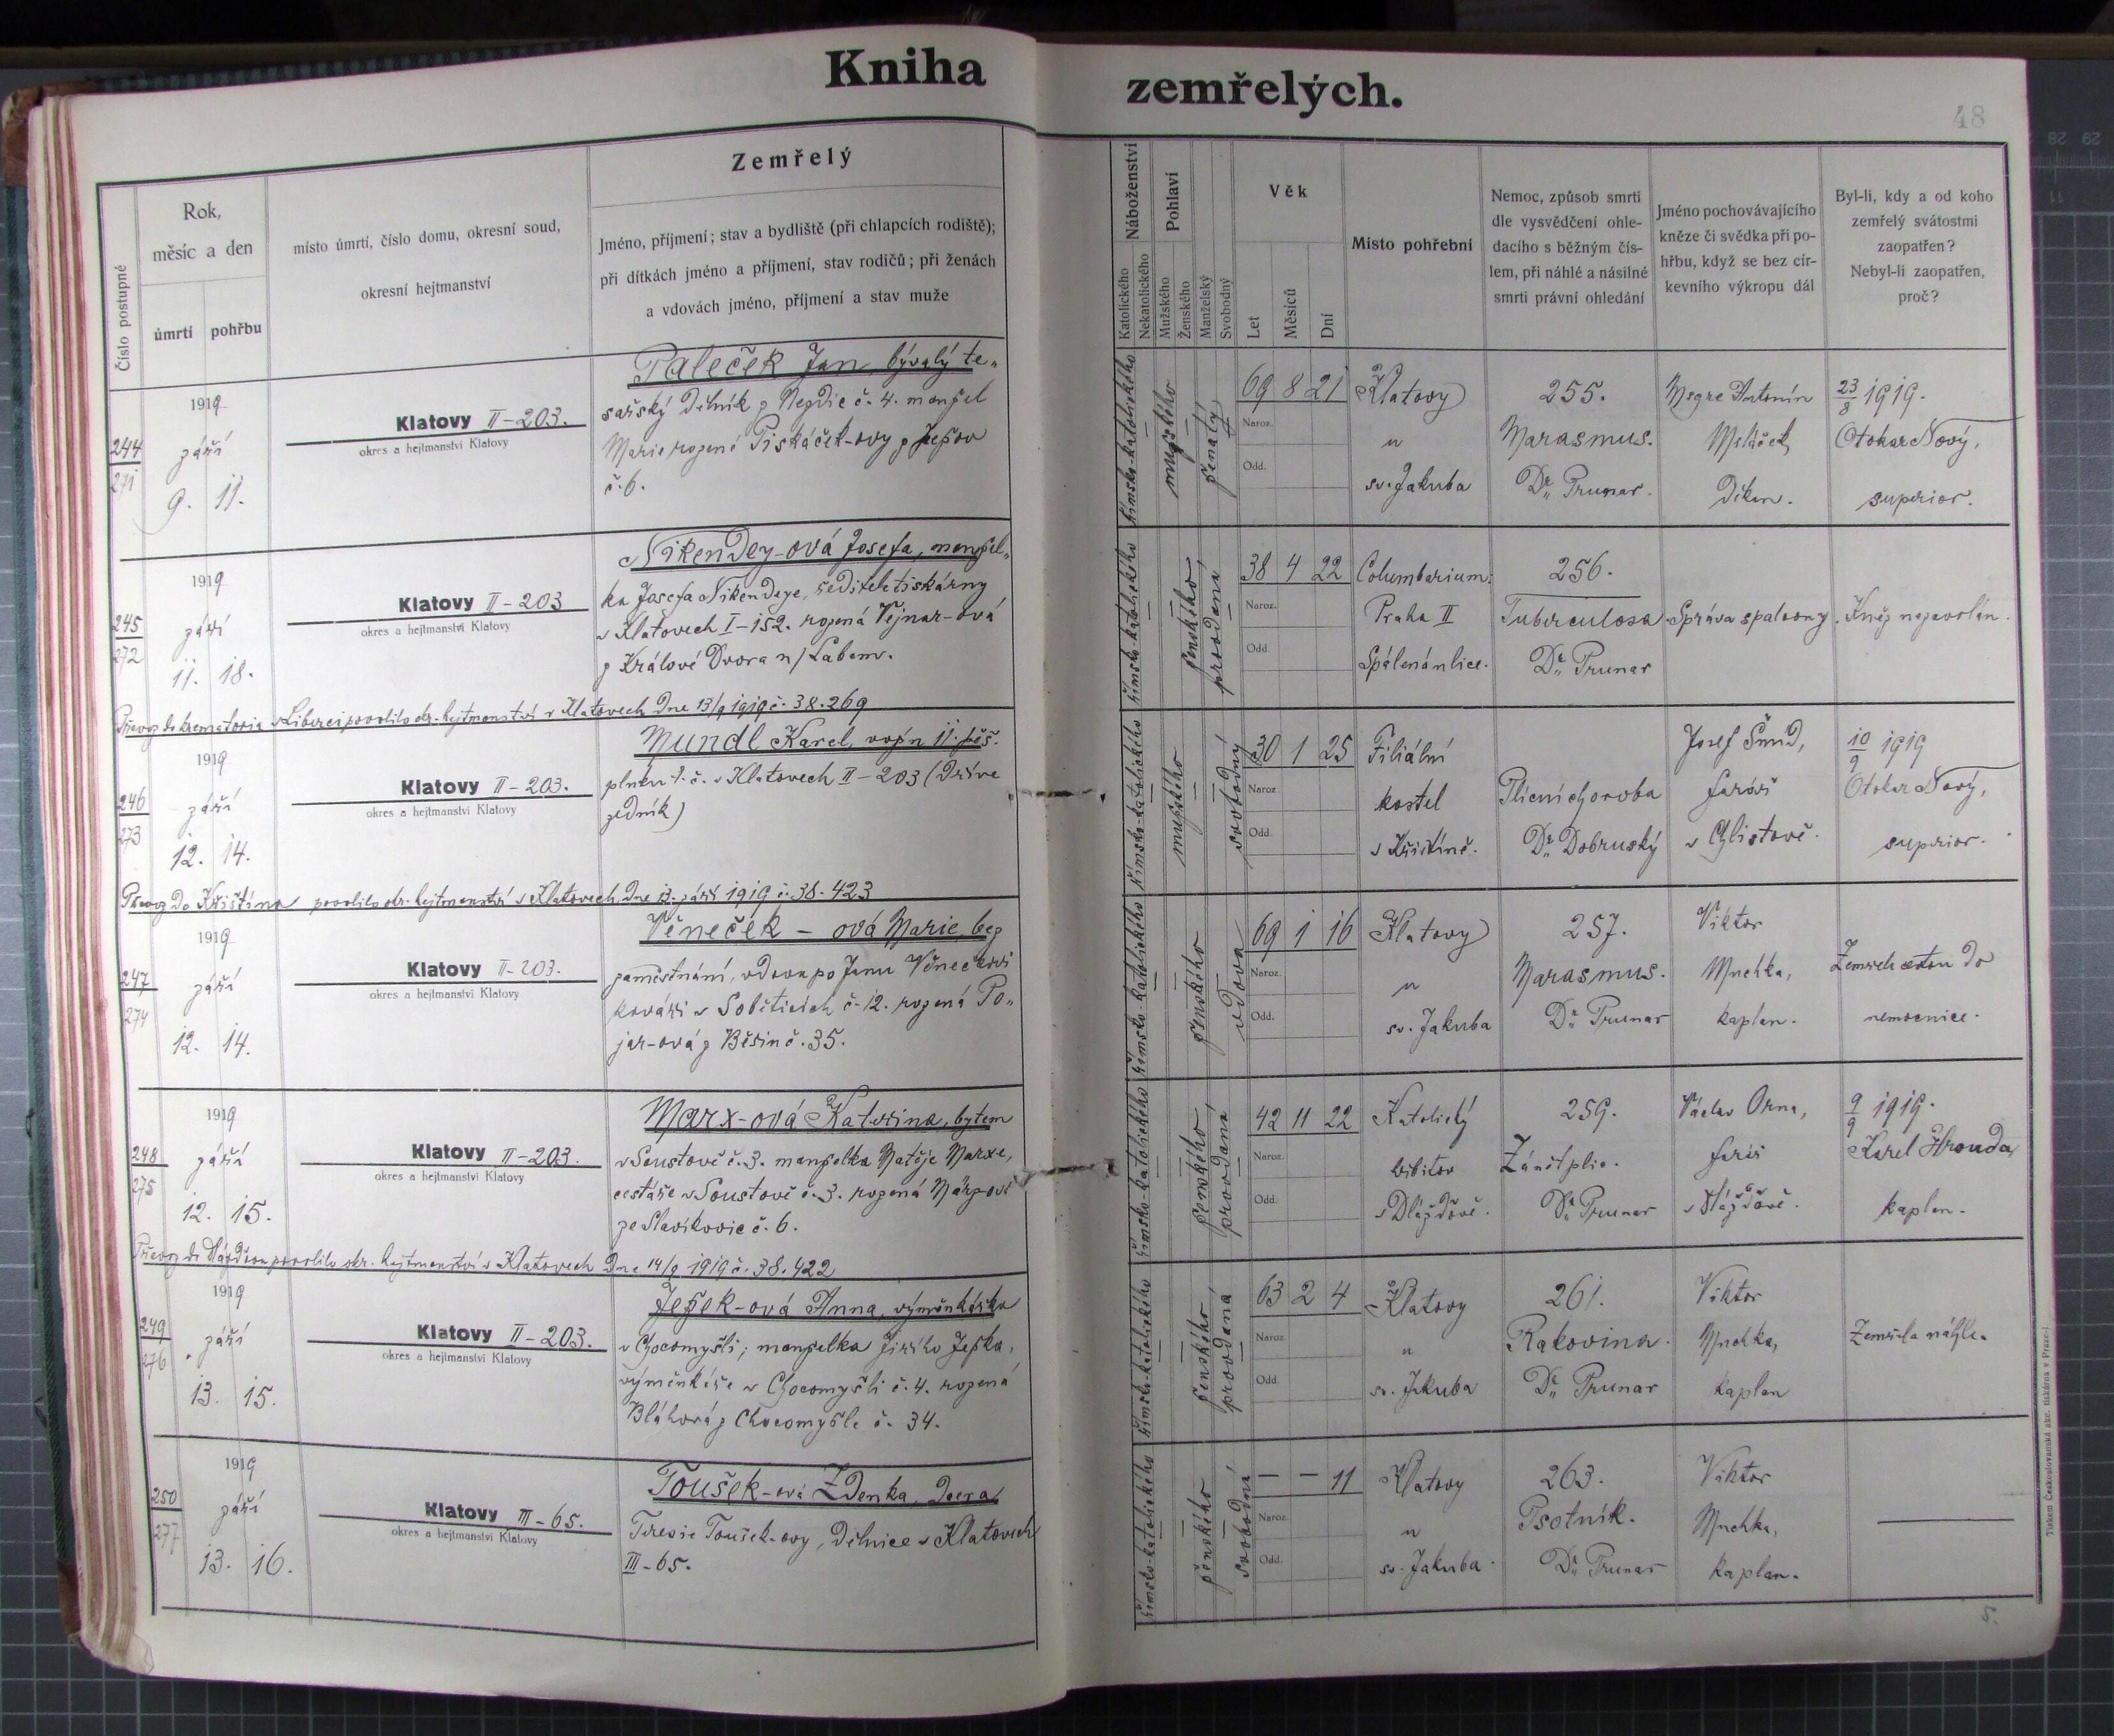 Kniha
zemřelých.
48
Číslo postupné
Rok,
měsíc a den
úmrtí
pohřbu
místo úmrtí, číslo domu, okresní soud,
okresní hejtmanství
Zemřelý
Jméno, příjmení; stav a bydliště (při chlapcích rodiště);
při dítkách jméno a příjmení, stav rodičů; při ženách
a vdovách jméno, příjmení a stav muže
Náboženství
Katolického
Nekatolického
Pohlaví
Mužského
Ženského
Manželský
Svobodný
Věk
Let
Měsíců
Dní
Místo pohřební
Nemoc, způsob smrti
dle vysvědčení ohle-
dacího s běžným čís-
lem, při náhlé a násilné
smrti právní ohledání
Jméno pochovávajícího
kněze či svědka při po-
hřbu, když se bez cír-
kevního výkropu dál
Byl-li, kdy a od koho
zemřelý svátostmi
zaopatřen?
Nebyl-li zaopatřen,
proč?
244
271
1919
září
9. 11.
Klatovy II-203.
okres a hejtmanství Klatovy
Paleček Jan, bývalý te-
sařský dělník z Nezdic č. 4. manžel
Marie rozené Piskáček-ovy z Ježov
č. 6.
římsko-katolického
mužského
ženatý
69 8 21
Naroz.
Odd.
Klatovy
u
sv. Jakuba
255.
Marasmus.
Dr. Prunar.
Msgre Antonín
Miláček,
děkan.
23/8 1919.
Otokar Nový,
superior.
245
272
1919
září
11. 18.
Klatovy II-203
okres a hejtmanství Klatovy
Nikendey-ová Josefa, manžel-
ka Josefa Nikendeye, ředitele tiskárny
v Klatovech I-152. rozená Vejnar-ová
z Králové Dvora n/Labem.
římsko-katolického
ženského
provdaná
38 4 22
Naroz.
Odd.
Columbarium:
Praha II
Spálená ulice.
256.
Tuberculosa
Dr. Prunar
Správa spalovny.
Kněz nezavolán.
Převoz do krematoria v Liberci povolilo okr. hejtmanství v Klatovech dne 13/9 1919 č. 38.269
246
273
1919
září
12. 14.
Klatovy II-203.
okres a hejtmanství Klatovy
Mundl Karel, vojín 11. pěš.
pluku t. č. v Klatovech II-203 (dříve
zedník)
římsko-katolického
mužského
svobodný
30 1 25
Naroz.
Odd.
Filiální
kostel
v Křištíně.
Plicní choroba
Dr. Dobruský
Josef Šmíd,
farář
v Chlistově.
10/9 1919
Otokar Nový,
superior.
Převoz do Křištína povolilo okr. hejtmanství v Klatovech dne 13. září 1919 č. 38.423
247
274
1919
září
12. 14.
Klatovy II-203.
okres a hejtmanství Klatovy
Věneček - ová Marie, bez
zaměstnání, vdova po Janu Věnečkovi
kováři v Soběticích č. 12. rozená Po-
jar-ová z Běšin č. 35.
římsko-katolického
ženského
vdova
69 1 16
Naroz.
Odd.
Klatovy
u
sv. Jakuba
257.
Marasmus.
Dr. Prunar
Viktor
Muchka,
kaplan.
Zemřela cestou do
nemocnice.
248
275
1919
září
12. 15.
Klatovy II-203.
okres a hejtmanství Klatovy
Marx-ová Kateřina, bytem
v Soustově č. 3. manželka Matěje Marxe,
cestáře v Soustově č. 3. rozená
ze Slavíkovic č. 6.
římsko-katolického
ženského
provdaná
42 11 22
Naroz.
Odd.
Katolický
hřbitov
v Dlažďově.
259.
Zánět plic.
Dr. Prunar
Václav Orna,
farář
v Dlažďově.
9/9 1919.
Karel Hrouda,
kaplan.
Převoz do Dlažďova povolilo okr. hejtmanství v Klatovech dne 14/9 1919 č. 38.422
249
276
1919
září
13. 15.
Klatovy II-203.
okres a hejtmanství Klatovy
Ježek-ová Anna, výměnkářka
v Chocomyšli; manželka Jiřího Ježka,
výměnkáře v Chocomyšli č. 4. rozená
Bláhová z Chocomyšle č. 34.
římsko-katolického
ženského
provdaná
63 2 4
Naroz.
Odd.
Klatovy
u
sv. Jakuba
261.
Rakovina.
Dr. Prunar
Viktor
Muchka,
kaplan
Zemřela náhle.
250
277
1919
září
13. 16.
Klatovy III-65.
okres a hejtmanství Klatovy
Toušek-ová Zdenka, dcera
Teresie Toušek-ovy, dělnice v Klatovech
III-65.
římsko-katolického
ženského
svobodná
— — 11
Naroz.
Odd.
Klatovy
u
sv. Jakuba.
263.
Psotník.
Dr. Prunar
Viktor
Muchka,
kaplan.
Tiskem Československá akc. tiskárna v Praze-I.